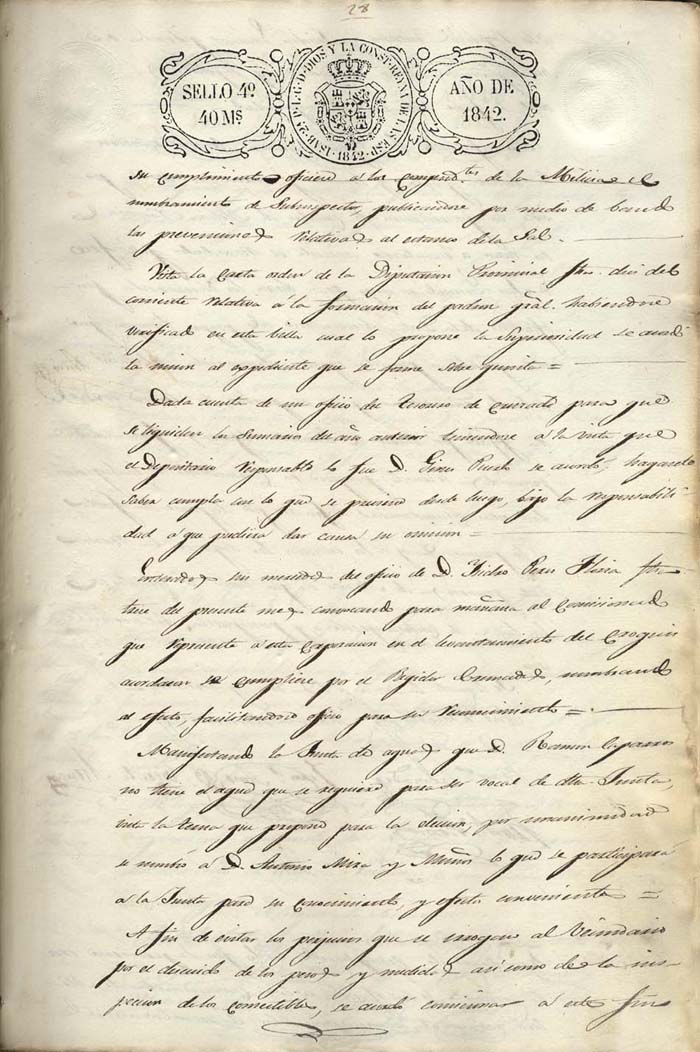 28
SELLO 4º
40 Ms
ISAB. 2ª P. L. G. D. DIOS Y LA CONST. REYNA DE LAS ESP.
1842
AÑO DE
1842.
su cumplimiento oficiese á los Comand.tes de la Milicia el
nombramiento de Subinspector, publicandose por medio de bando
las prevenciones relativas al estanco de la Sal.
Vista la Carta orden de la Diputacion Provincial fha. dies del
corriente relativa á la formacion del padron gral. habiendose
verificado en esta Villa cual lo propone la Superioridad se acordó
la union al expediente que se forme sobre quinta =
Dada cuenta de un oficio del Tesorero de Cruzada para que
se liquiden los Sumarios del año anterior teniendose á la vista que
el Depositario responsable lo fue D. Gines se acordó, hagasele
saber cumpla con lo que se previene desde luego, bajo la responsabili
dad á que pudiera dar causa su omision =
Enterados sus mercedes del oficio de D. Isidro Perez fha.
trece del presente mes convocando para mañana al Comisionado
que represente á esta Corporacion en el levantamiento del Croquis
acordaron se cumpliese por el Regidor nombrado
al efecto, facilitandose oficio para su reconocimiento =
Manifestando la Junta de aguas que D. Ramon Caparros
no tiene el agua que se requiere para ser vocal de dha. Junta,
vista la terna que propone para la eleccion, por unanimidad
se nombró á D. Antonio Mira y Muños lo que se participará
á la Junta para su conocimiento, y efectos convenientes =
A fin de evitar los perjuicios que se irrogan al Vecindario
por el descuido de los pesos y medidas asi como de la ins-
peccion de los comestibles, se acordó comisionar á este fin